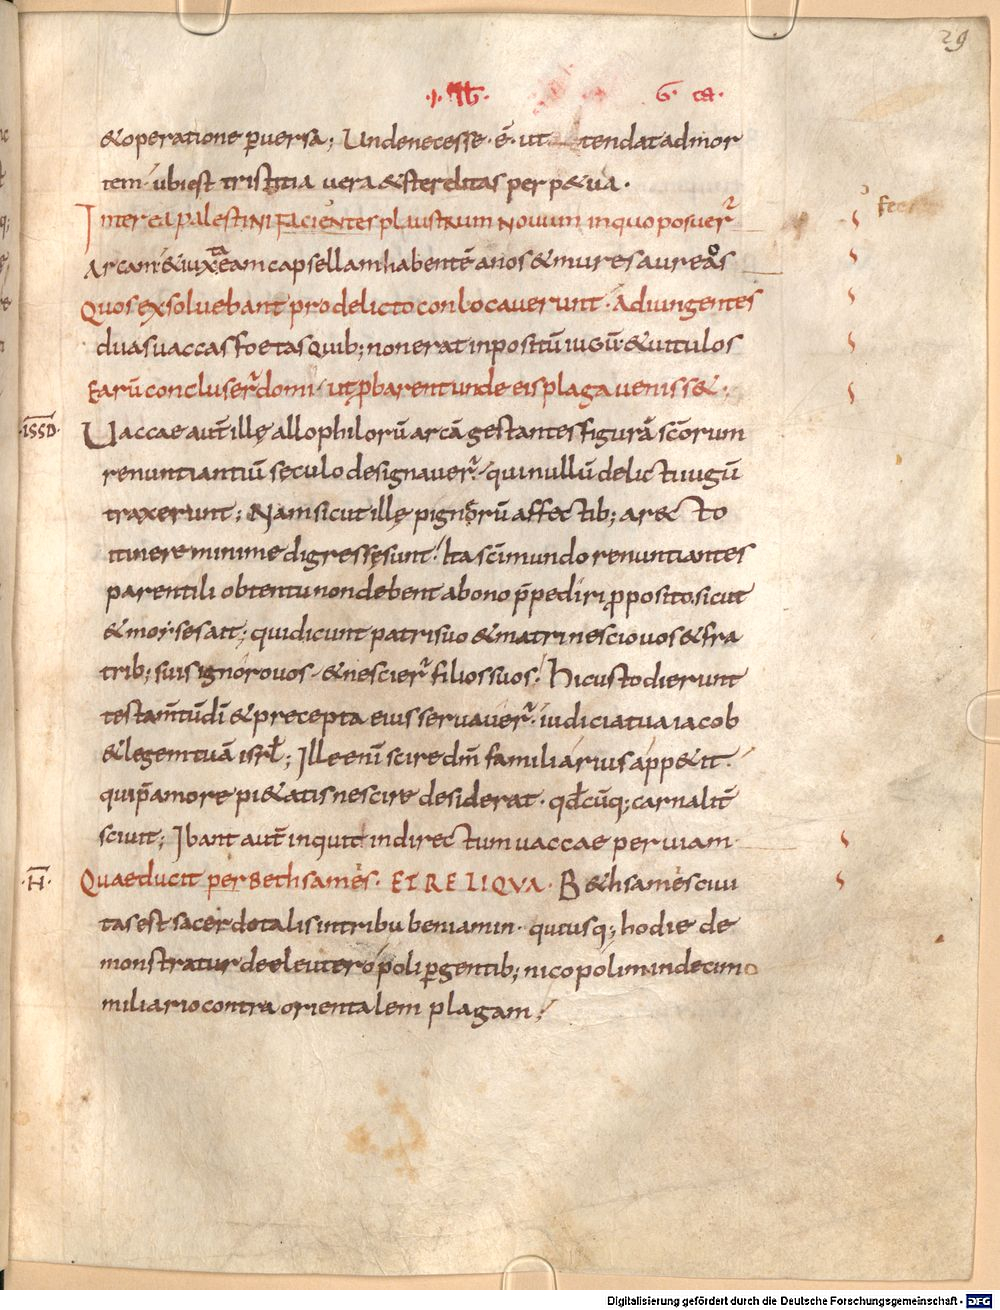 29
·I· G· ca·
&operatione puersa; Undenecesse·ē·ut tendatadmor
tem· ubiest tristitia uera &sterelitas perp&ua·
Interea palestini facientes plaustrum nouum inquoposuer̄
Arcam·&iuxta eam capsellam habentē anos &mures aureos
Quos exsoluebant prodelicto conlocauerunt· Adiungentes
duasuaccas foetas quib; nonerat inpositū iugū·&uitulos
Earū concluser̄ domi· ut pbarent unde eis plaga uenisse&;
·ISSD·
Uaccae aut̄ illę allophilorū arcā gestantes figurā scōrum
renuntiantiū seculo designauer̄· qui nullū delicti iugū
traxerunt; Nam sicut illę pignorū affectib; arecto
itinere minime digressę sunt· Ita scī mundo renuntiantes
parentili obtentu nondebent abono p̄pediri pposito· sicut
&moyses ait; quidicunt patrisuo &matri nescio uos &fra
trib; suis ignoro uos· &nescier̄ filios suos· Hi custodierunt
testam̄ tuū dī &precepta eius seruauer̄· iudicia tua iacob
&legem tuā isrł; Ille enī scire dm̄ familiarius app&it·
qui p̄ amore pi&atis nescire desiderat· qđcūq; carnalit̄
sciuit; Ibant aut̄ inquit indirectum uaccae peruiam·
·H·
Quae ducit per Bethsames· ET RELIQVA· B&hsames ciui
tas est sacerdotalis intribu beniamin· quiusq; hodie de
monstratur deeleuteropoli pgentib; nicopolim indecimo
miliario contra orientalem plagam;
Digitalisierung gefördert durch die Deutsche Forschungsgemeinschaft - DFG